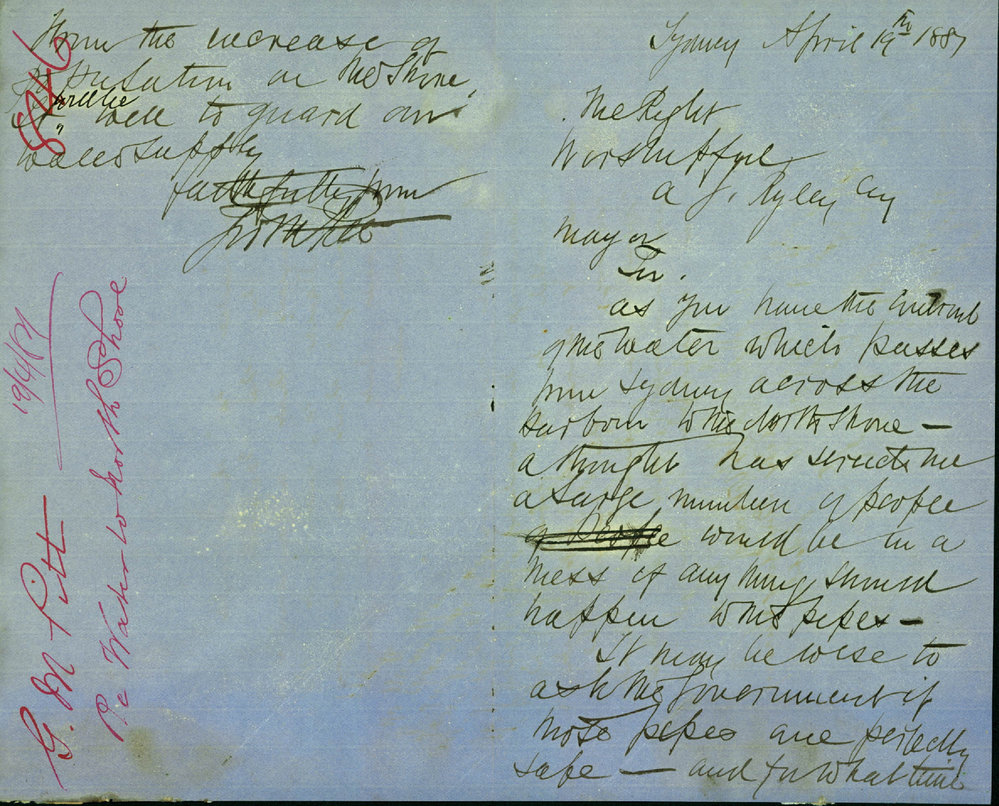 Sydney April 19th 1887
The Right
Worshipful
A J. Ryley Esq
Mayor
Sir.
As you have the control
of the water which passes
from Sydney across the
harbour to the North Shore —
a thought has struck me
a large number of people
of People would be in a
mess if any thing should
happen to the pipes —
It may be wise to
ask the Government if
those pipes are perfectly
safe — and for what time
From the increase of
population on the Shore,
it would be well to guard our
water supply
faithfully yours
G. M. Pitt
8246
19/4/87
G. M. Pitt
Re Water to North Shore